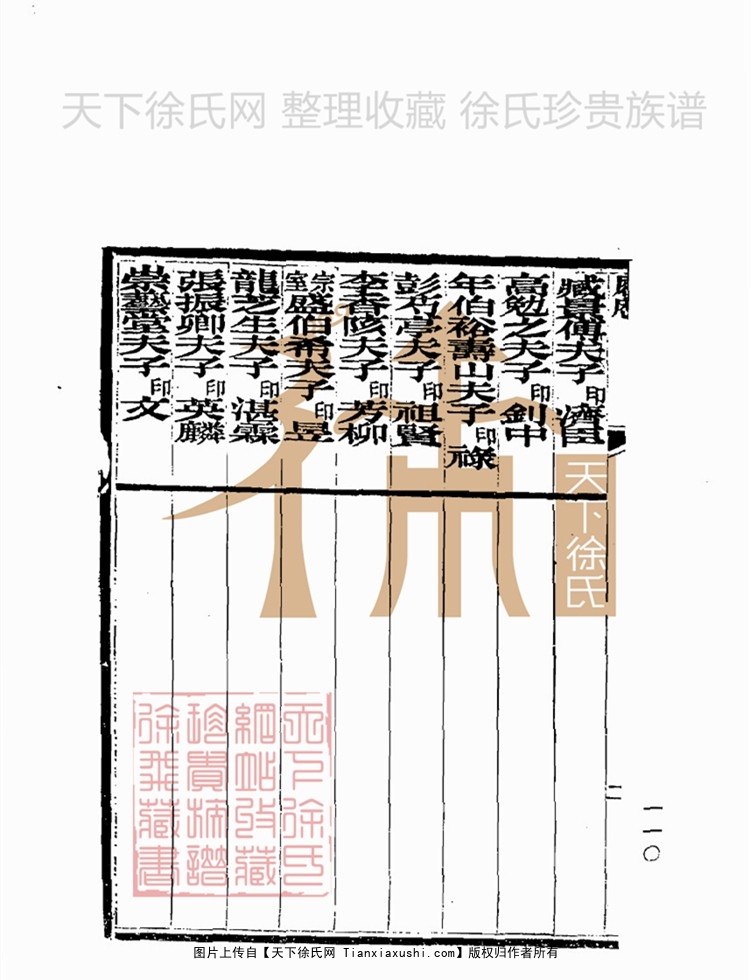 天下徐氏网 整理收藏 徐氏珍贵族谱
臧景傅夫子印濟臣
高勉之夫子印釗中
年伯裕壽山夫子印祿
彭芍亭夫子印祖賢
李香陔夫子印芳柳
宗室盛伯希夫子印昱
龍芝生夫子印湛霖
張振卿夫子印英麟
崇藝堂夫子印文
二
一一〇
天下徐氏
天下徐氏
網站收藏
珍貴族譜
徐飛藏書
图片上传自【天下徐氏网 Tianxiaxushi.com】版权归作者所有